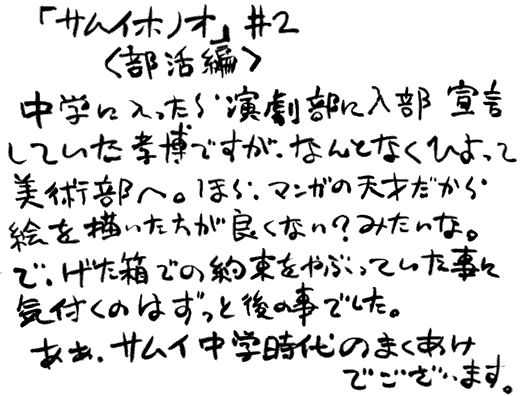 「サムイホノオ」#2
〈部活編〉
中学に入ったら演劇部に入部 宣言
していた孝博ですが、なんとなくひよって
美術部へ。ほら、マンガの天才だから
絵を描いた方が良くない?みたいな。
で、げた箱での約束をやぶっていた事に
気付くのはずっと後の事でした。
ああ、サムイ中学時代のまくあけ
でございます。